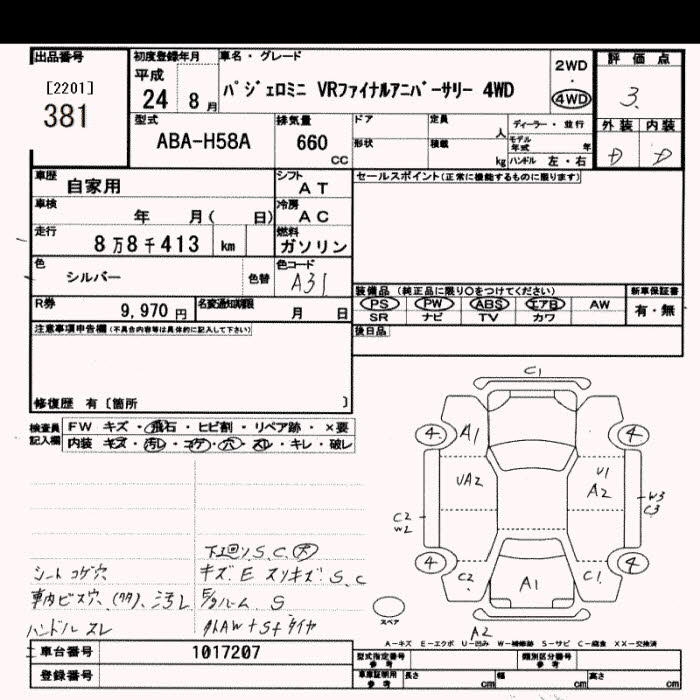 出品番号
[2201]
381
初度登録年月
平成
24 8月
車名・グレード
パジェロミニ VRファイナルアニバーサリー 4WD
2WD
・
4WD
評価点
3.
外装 内装
D D
型式
ABA-H58A
排気量
660
CC
ドア
形状
定員
人
積載
kg
ディーラー・並行
モデル年式 年
ハンドル 左・右
車歴
自家用
シフト
AT
車検
年 月( 日)
冷房
AC
走行
8万8千413 km
燃料
ガソリン
色
シルバー
色替
色コード
A31
R券
9,970円
名変通知期限
月 日
セールスポイント(正常に機能するものに限ります)
装備品 (純正品に限り○をつけてください)
PS PW ABS エアB AW
SR ナビ TV カワ
新車保証書
有・無
後日品
注意事項申告欄(不具合内容等は具体的に記入して下さい)
修復歴 有〔箇所 〕
検査員
記入欄
FW キズ・飛石・ヒビ割・リペア跡・×要
内装 キズ・汚レ・コゲ・穴・スレ・キレ・破レ
シートコゲ穴
車内ビス穴、(多)、汚レ
ハンドルスレ
下廻りS、C、大
キズ、E スリキズ、S、C
E/gルーム S
C1
4 A1 4
UA2
U1
A2
C2
W2
W3
C3
4 C2 A1 C1 4
A2
スペア
A-キズ E-エクボ U-凹み W-補修跡 S-サビ C-腐食 XX-交換済
車台番号
1017207
登録番号
型式指定番号
参考
類別区分番号
参考
車庫証明用
参考
長さ cm 幅 cm 高さ cm